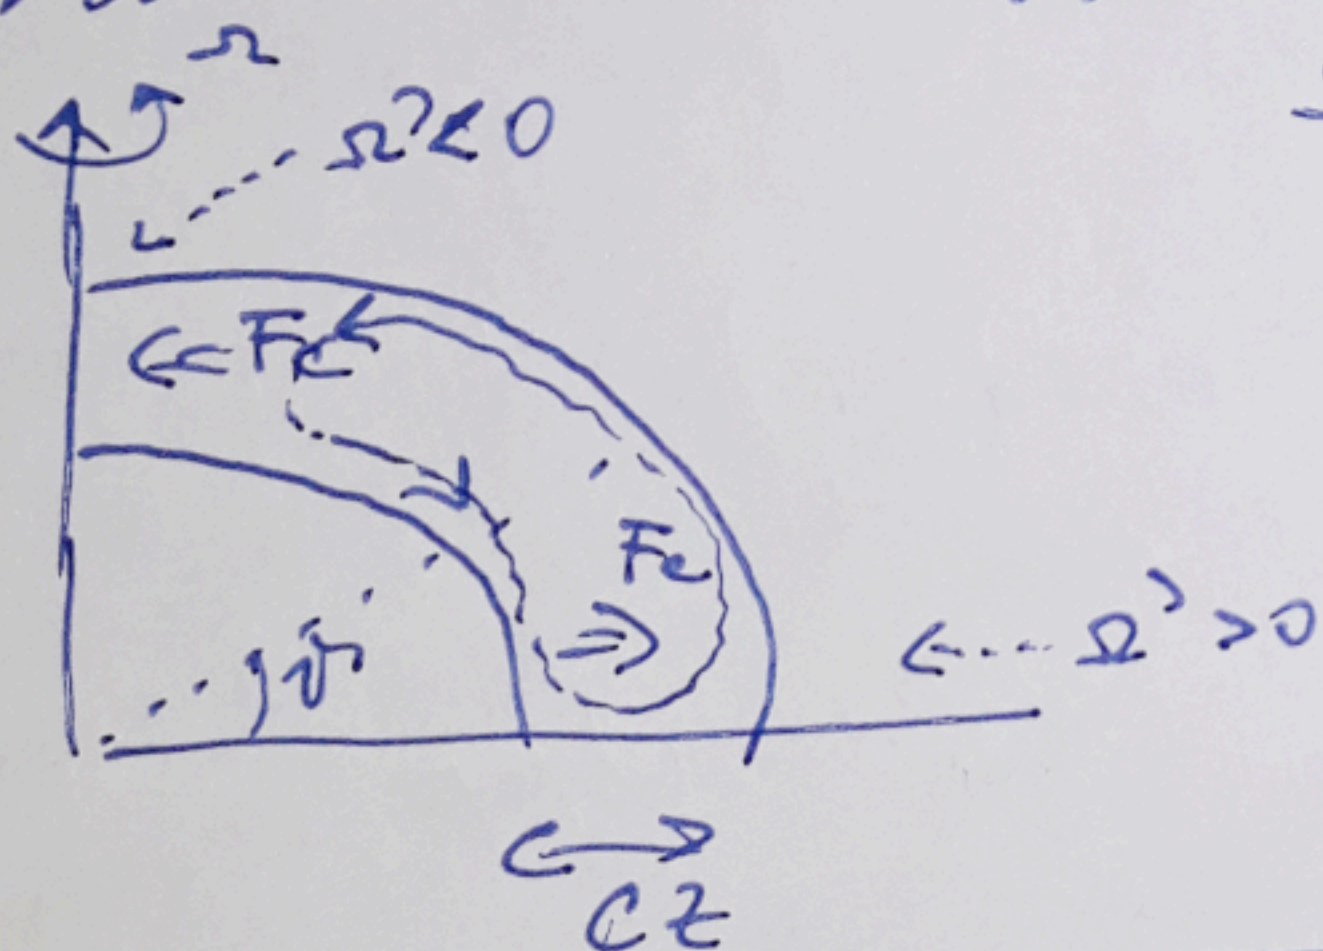 Ω
Ω' < 0
Fc
Fc
Ω' > 0
CZ